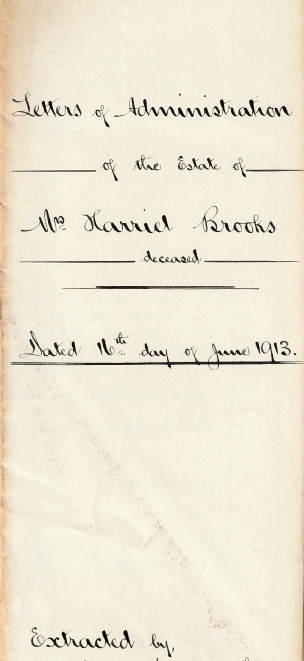 Letters of Administration
of the Estate of
Mrs Harriet Brooks
deceased
Dated 16th day of June 1913.
Extracted by,